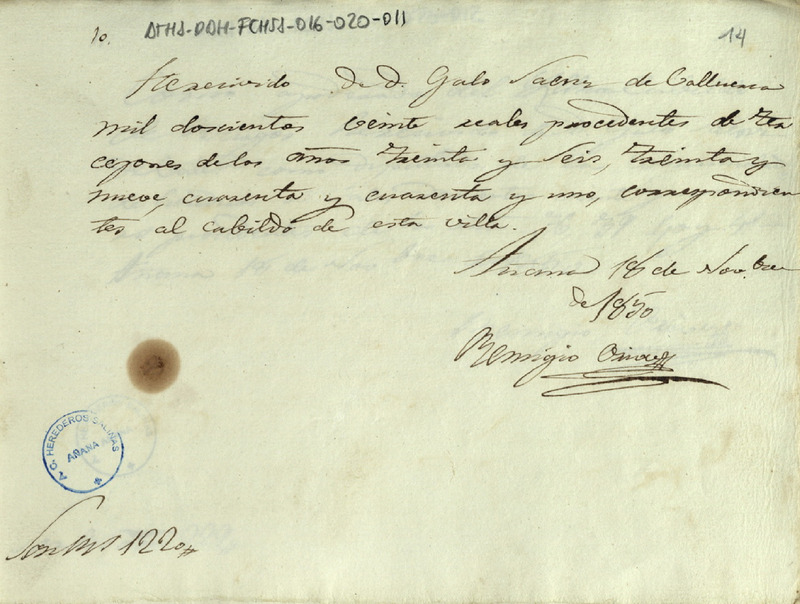 10. ATHA-DAH-FCHSA-016-020-011
14
He recivido de D. Galo Saenz de
mil doscientos veinte reales procedentes de
de los años treinta y seis, treinta y
nueve, cuarenta y cuarenta y uno, correspondien
tes al cabildo de esta villa.
Añana 16 de Novbre
de 1850
Remigio
A. C. HEREDEROS SALINAS
AÑANA
Son 1220